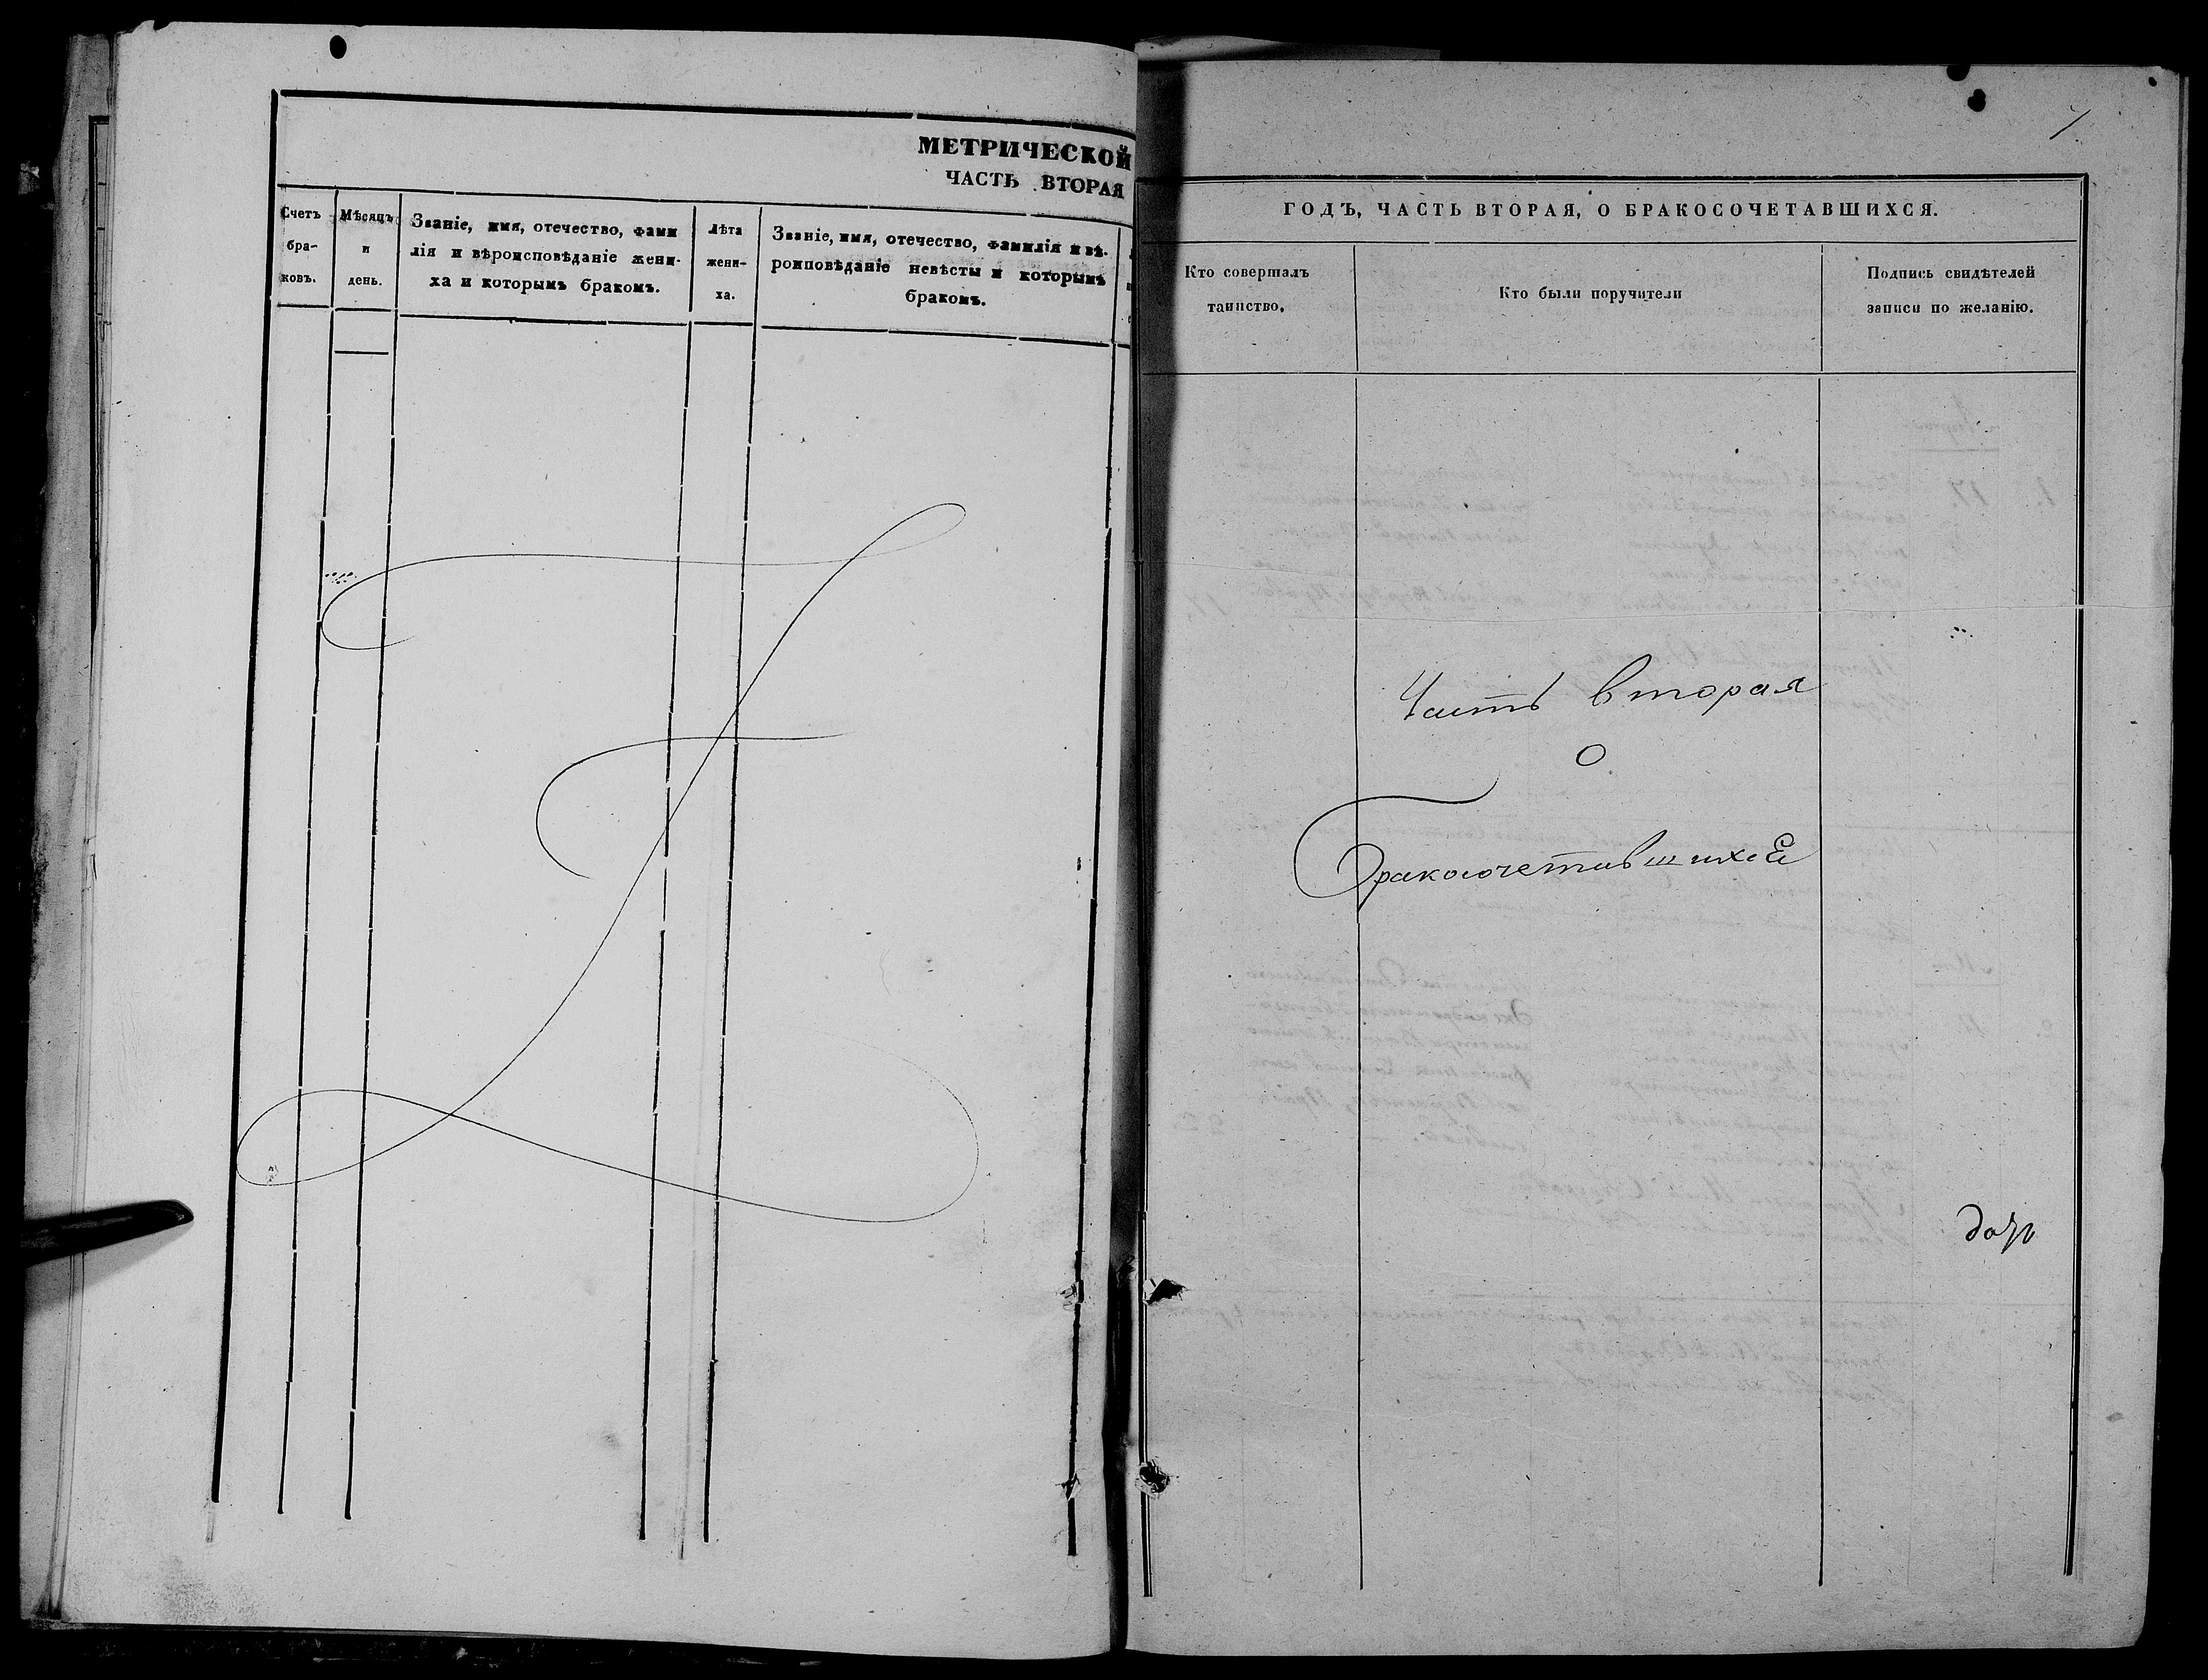 МЕТРИЧЕСКОЙ
ЧАСТЬ ВТОРАЯ
Счетъ
бра-
ковъ.
Мѣсяцъ
и
день.
Званіе, имя, отечество, фами
лія и вѣроисповѣданіе жени-
ха и которымъ бракомъ.
Лѣта
жени-
ха.
Званіе, имя, отечество, фамилія и вѣ-
роиповѣданіе невѣсты и которымъ
бракомъ.
7
ГОДЪ, ЧАСТЬ ВТОРАЯ, О БРАКОСОЧЕТАВШИХСЯ.
Кто совершалъ
таинство.
Кто были поручители
Подпись свидѣтелей
записи по желанію.
Часть вторая
О
Бракосочетавшихся